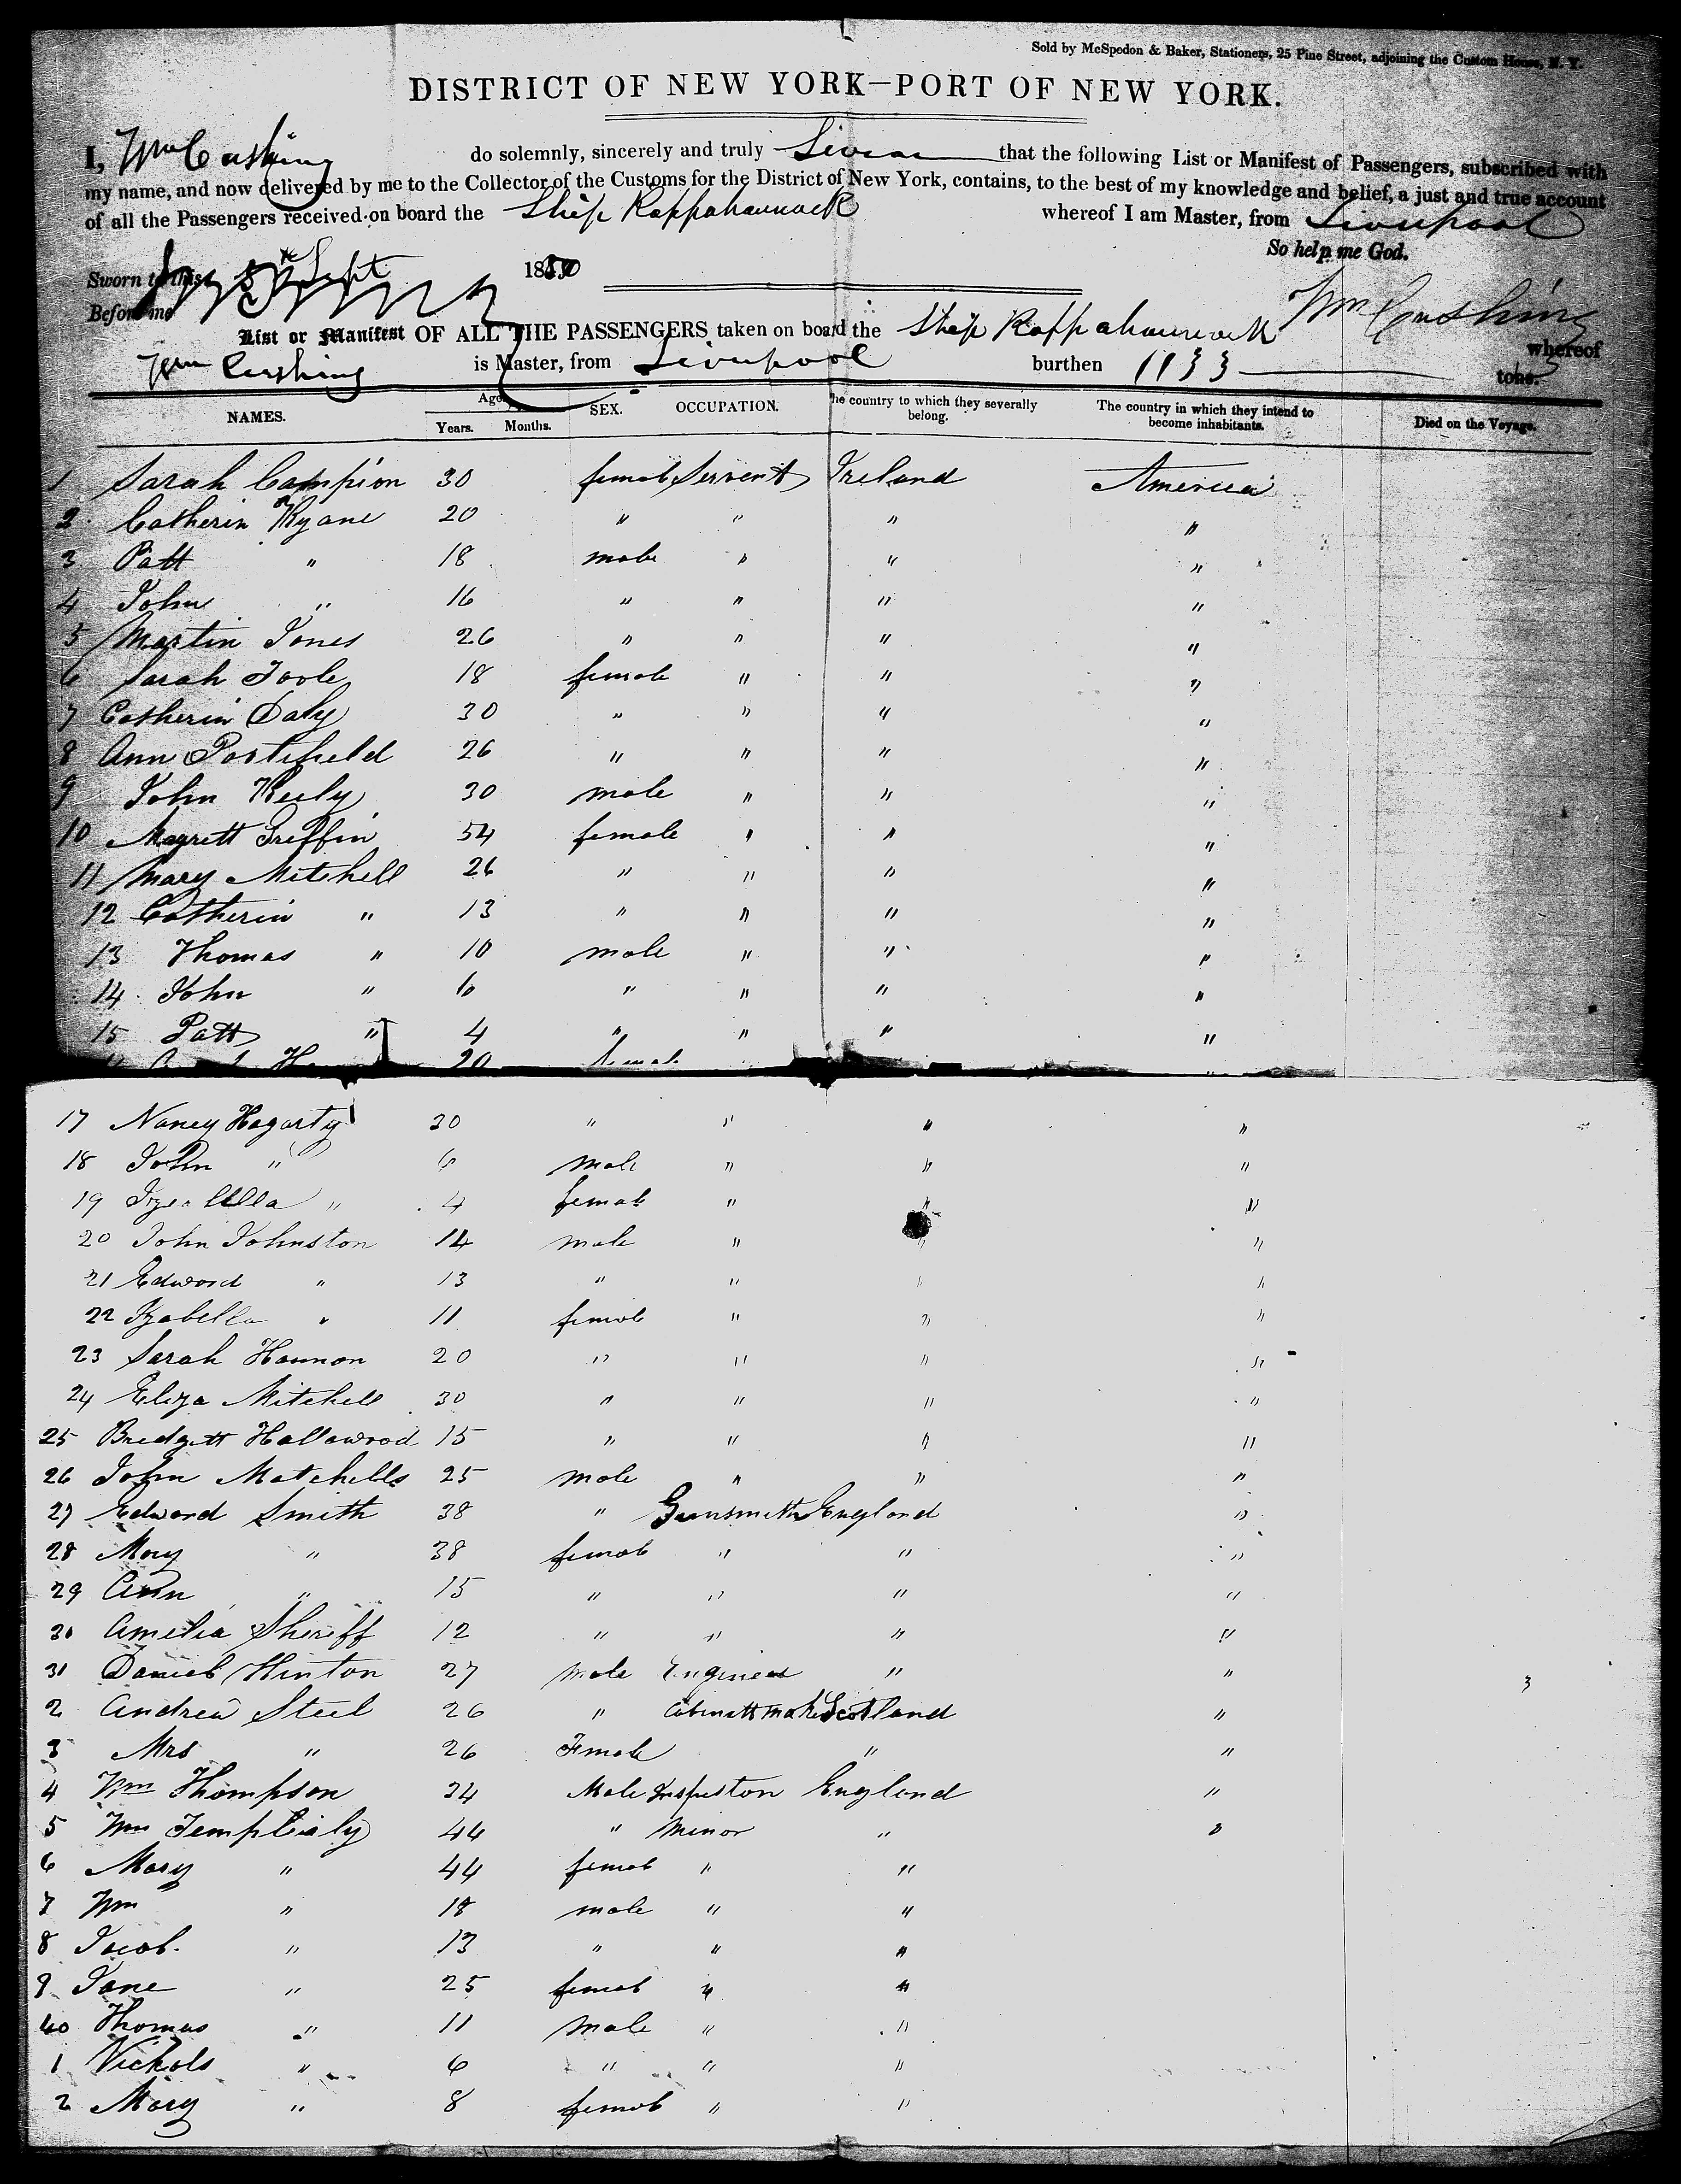 Sold by McSpedon & Baker, Stationers, 25 Pine Street, adjoining the Custom House, N. Y.
DISTRICT OF NEW YORK—PORT OF NEW YORK.
I, Wm Cushing do solemnly, sincerely and truly Swear that the following List or Manifest of Passengers, subscribed with
my name, and now delivered by me to the Collector of the Customs for the District of New York, contains, to the best of my knowledge and belief, a just and true account
of all the Passengers received on board the Ship Rappahannock whereof I am Master, from Liverpool
So help me God.
Sworn to this Sept 1850
Before me Wm Cushing
List or Manifest OF ALL THE PASSENGERS taken on board the Ship Rappahannock whereof
Wm Cushing is Master, from Liverpool burthen 1133 tons.
NAMES. Age. Years. Months. SEX. OCCUPATION. The country to which they severally belong. The country in which they intend to become inhabitants. Died on the Voyage.
1 Sarah Campion 30 femal Servent Ireland America
2 Catherin Ryane 20 " " " "
3 Patt " 18 male " " "
4 John " 16 " " " "
5 Martin Jones 26 " " " "
6 Sarah Toole 18 female " " "
7 Catherin Daly 30 " " " "
8 Ann Portifield 26 " " " "
9 John Keely 30 male " " "
10 Magrett Griffin 54 female " " "
11 Mary Mitchell 26 " " " "
12 Catherin " 13 " " " "
13 Thomas " 10 male " " "
14 John " 6 " " " "
15 Patt " 4 " " " "
20 female
17 Nancy Hagarty 30 " " " "
18 John " 6 male " " "
19 " 4 femal " " "
20 John Johnston 14 male " " "
21 Edword " 13 " " " "
22 Izabella " 11 female " " "
23 Sarah Hannon 20 " " " "
24 Eliza Mitchell 30 " " " "
25 Bridgett Hallawood 15 " " " "
26 John Matchells 25 male " " "
27 Edword Smith 38 " Gunsmith England "
28 Mary " 38 female " " "
29 Ann " 15 " " " "
30 Amelia Sheriff 12 " " " "
31 Daniel Hinton 27 male Engineer " "
2 Andrew Steel 26 " Scotland "
3 Mrs " 26 Female " "
4 Wm Thompson 34 Male England "
5 Wm 44 " Minor " "
6 Mary " 44 femal " "
7 Wm " 18 male " "
8 Jacob " 13 " " "
9 Jane " 25 femal " "
40 Thomas " 11 male " "
1 Nichols " 6 " " "
2 Mary " 8 femal " "